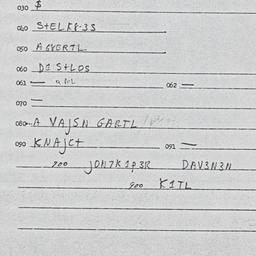 030 $
040 StELKP-3S
050 AGVERTL
060 DISTLOS
061 — 062 —
070 —
080 A VAJSN GARTL
090 KNAJCt 091 —
700 JON7K1P3R DAV3N3N
900 K1TL